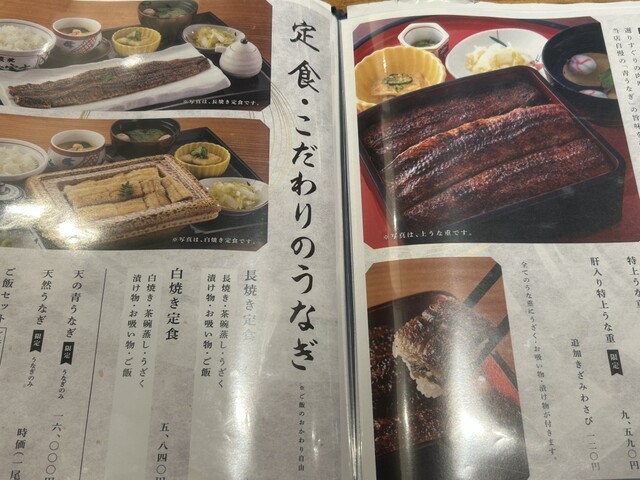 選りすぐりの
当店自慢の「青うなぎ」の旨味
※写真は、上うな重です。
特上うな
肝入り特上うな重 限定
九、五九〇円
追加きざみわさび 一二〇円
全てのうな重にうざく・お吸い物・漬け物が付きます。
定食・こだわりのうなぎ
※ご飯のおかわり自由
※写真は、長焼き定食です。
※写真は、白焼き定食です。
長焼き定食
長焼き・茶碗蒸し・うざく
漬け物・お吸い物・ご飯
白焼き定食
白焼き・茶碗蒸し・うざく
漬け物・お吸い物・ご飯
五、八四〇円
天の青うなぎ 限定 うなぎのみ
一六、〇〇〇円
天然うなぎ 限定 うなぎのみ
時価(一尾
ご飯セット